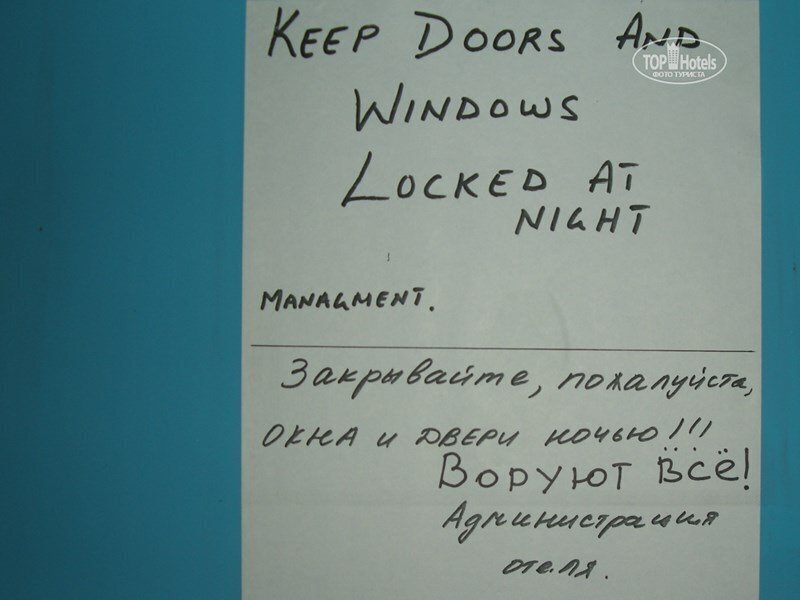 KEEP DOORS AND
WINDOWS
LOCKED AT
NIGHT
MANAGMENT.
Закрывайте, пожалуйста,
ОКНА и ДВЕРИ НОЧЬЮ!!!
ВОРУЮТ ВСЁ!
Администрация
отеля.
TOP Hotels
ФОТО ТУРИСТА